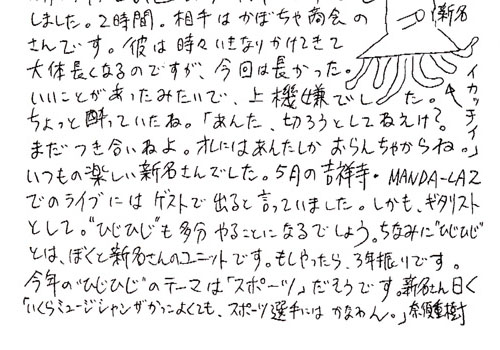 しました。2時間。相手はかぼちゃ商会の
さんです。彼は時々いきなりかけてきて
大体長くなるのですが、今回は長かった。
いいことがあったみたいで、上機嫌でした。
ちょっと酔っていたね。「あんた、切ろうとしてねえけ?
まだつき合いねよ。オレにはあんたしかおらんちゃからね。」
いつもの楽しい新名さんでした。5月の吉祥寺・MANDA-LA2
でのライブにはゲストで出ると言っていました。しかも、ギタリスト
として。"ひじひじ"も多分やることになるでしょう。ちなみに"ひじひじ"
とは、ぼくと新名さんのユニットです。もしやったら、3年振りです。
今年の"ひじひじ"のテーマは「スポーツ」だそうです。新名さん曰く
「いくらミュージシャンがかっこよくても、スポーツ選手にはかなわん。」
新名
イカッチィ